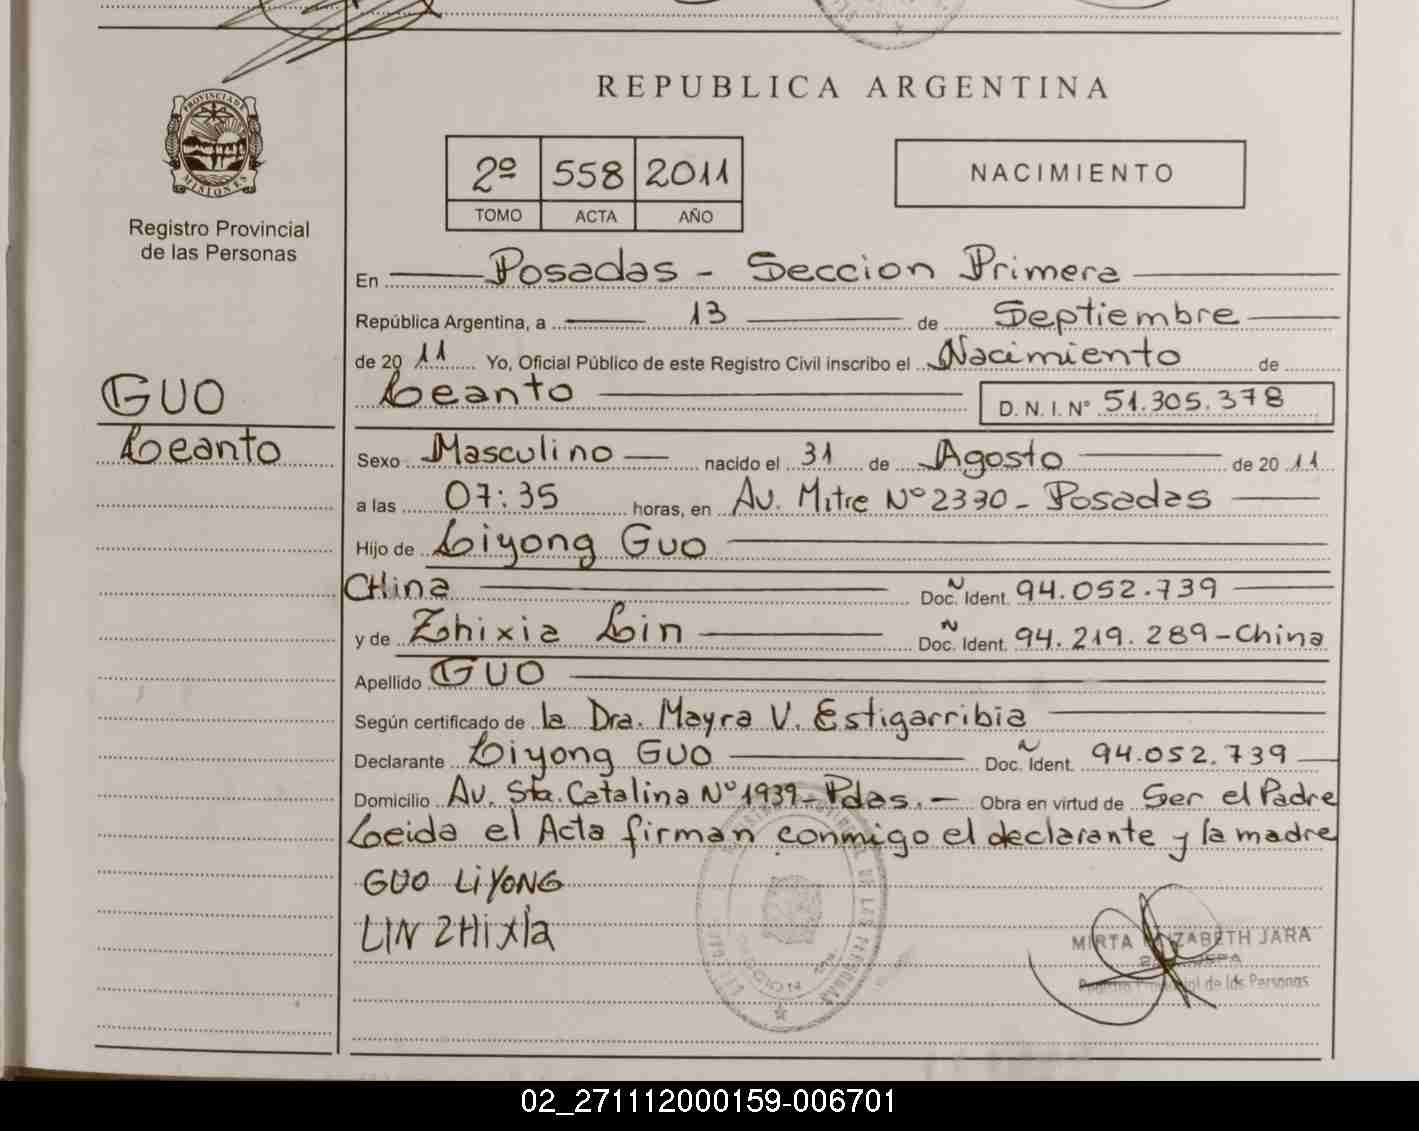 REPUBLICA ARGENTINA
PROVINCIA DE
MISIONES
Registro Provincial
de las Personas
2º 558 2011
TOMO ACTA AÑO
NACIMIENTO
En Posadas - Seccion Primera
República Argentina, a 13 de Septiembre
de 20 11 Yo, Oficial Público de este Registro Civil inscribo el Nacimiento de
Leanto D. N. I. Nº 51.305.378
GUO
Leanto
Sexo Masculino nacido el 31 de Agosto de 20 11
a las 07:35 horas, en Av. Mitre Nº 2330 - Posadas
Hijo de Liyong Guo
CHina Doc. Ident. 94.052.739
y de Zhixia Lin Doc. Ident. 94.219.289 - China
Apellido GUO
Según certificado de la Dra. Mayra V. Estigarribia
Declarante Liyong GUO Doc. Ident. 94.052.739
Domicilio Av. Sta. Catalina Nº 1939 - Pdas. - Obra en virtud de Ser el Padre
Leida el Acta firman conmigo el declarante y la madre
GUO LiYONG
LIN ZHiXia
MIRTA ELIZABETH JARA
Registro Provincial de las Personas
02_271112000159-006701